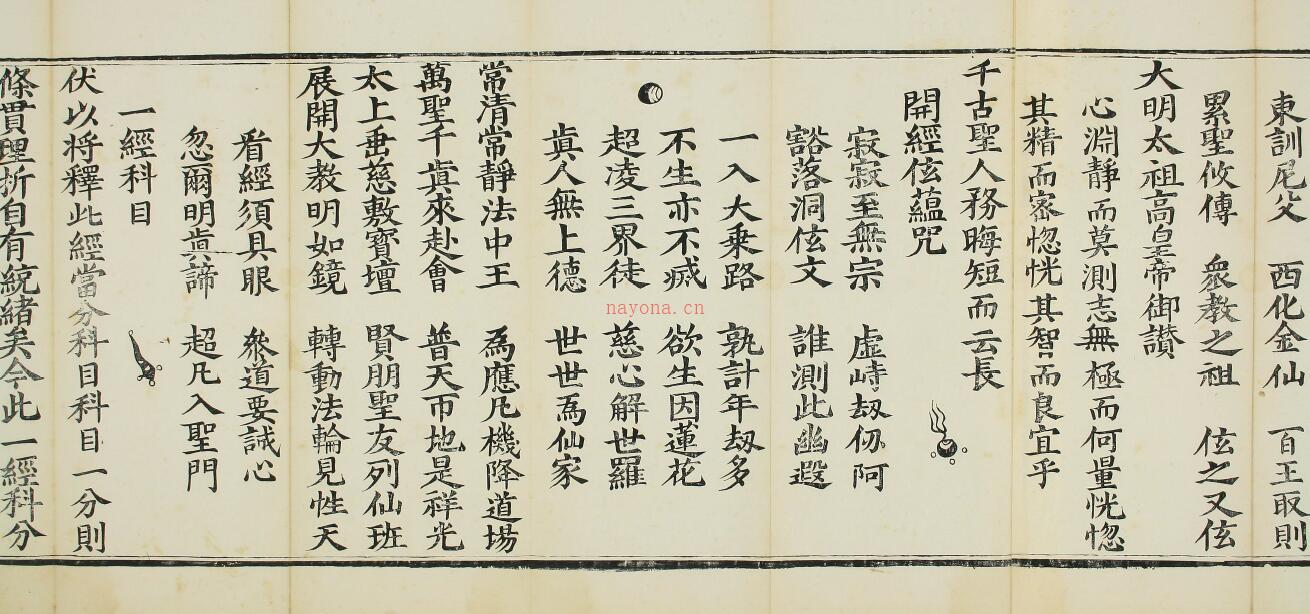 東訓尼父　西化金仙　百王取則
累聖攸傳　衆教之祖　伭之又伭
大明太祖高皇帝御讃
心淵靜而莫測志無極而何量恍惚
其精而宻惚恍其智而良宜乎
千古聖人務晦短而云長
開經伭蘊咒
寂寂至無宗　虛峙刼仞阿
豁落洞伭文　誰測此幽遐
一入大乗路　孰計年刼多
不生亦不滅　欲生因蓮花
超凌三界徒　慈心解世羅
眞人無上德　世世爲仙家
常清常靜法中王　爲應凡機降道場
萬聖千眞來赴會　普天帀地是祥光
太上垂慈敷寳壇　賢朋聖友列仙班
展開大教明如鏡　轉動法輪見性天
看經須具眼　叅道要誠心
忽爾明眞諦　超凡入聖門
一經科目
伏以将釋此經當分科目科目一分則
條貫理析自有統緒矣今此一經科分
nayona.cn